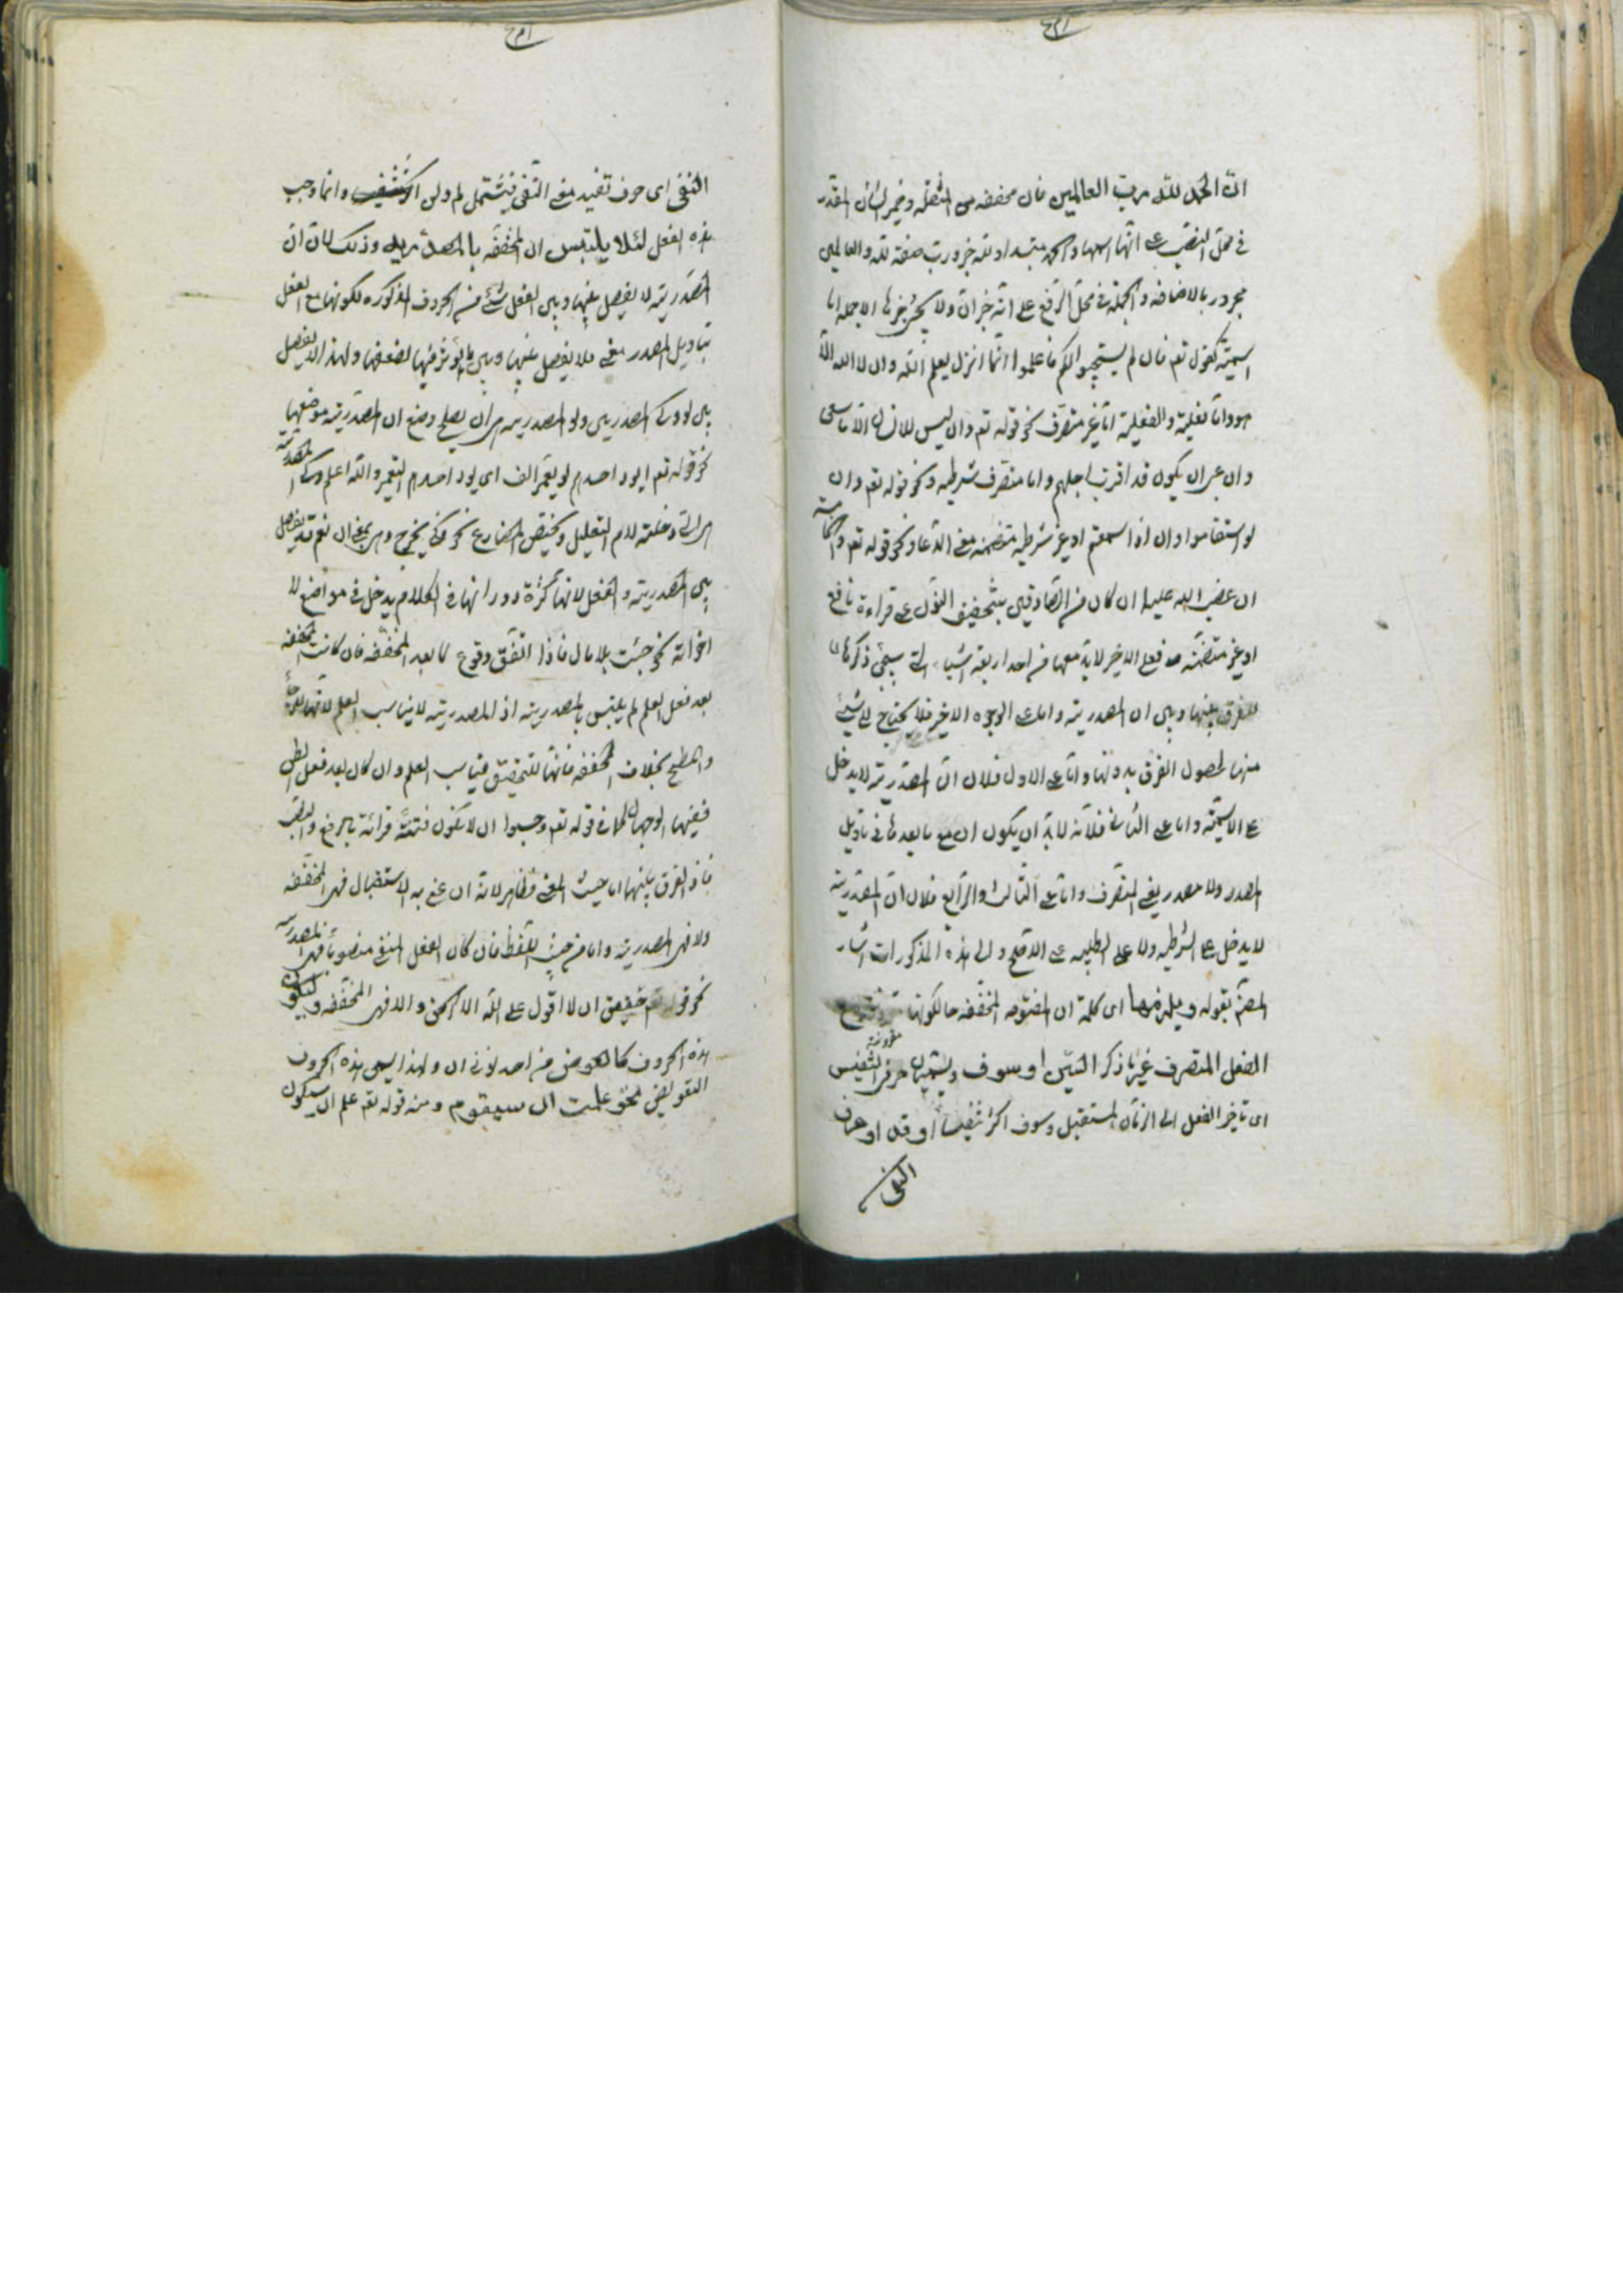 ان الحمد لله رب العالمين فان مخففه من المثقله وضمير الشان المقدر
فى محل النصب على انها اسمها والحمد مبتدا و لله خبر و رب صفة لله والعالمين
مجرور بالاضافه والجملة فى محل الرفع على انه خبر ان ولا يكون خبرها الا جملة اما
اسمية كقوله تعم فان لم يستجيبوا لكم فاعلموا انما انزل بعلم الله وان لا اله الا
هو واما فعلية والفعلية اما غير متصرف نحو قوله تعم وان ليس للانسان الا ما سعى
وان عسى ان يكون قد اقترب اجلهم واما متصرف شرطيه نحو قوله تعم وان
لو استقاموا وان اذا سمعتم او غير شرطيه متضمنه معنى الدعاء نحو قوله تعم والخامسة
ان غضب الله عليها ان كان من الصادقين بتخفيف النون على قراءة نافع
او غير متضمنه فعلى الاخير لابد معها من احد اربعة اشياء التى سيجئ ذكرها
للفرق بينها وبين ان المصدرية واما على الوجوه الاخير فلا يحتاج الى شيئ
منها لحصول الفرق بدونها واما على الاول فلان ان المصدرية لا يدخل
على الاسمية واما على الثانى فلانه لابد ان يكون ان مع ما بعدها فى تاويل
المصدر ولا مصدر لغير المتصرف واما على الثالث والرابع فلان ان المصدرية
لا يدخل على الشرطيه ولا على الطلبيه على الاصح والى هذه المذكورات اشار
المصنف بقوله ويلزمها اى كلمة ان المفتوحه المخففه حالكونها
مقرونة
الفعل المتصرف غير ما ذكر السين او سوف ويسميان حرفى التنفيس
اى تاخير الفعل الى الزمان المستقبل وسوف اكثر تنفيسا او قد او حرف
النفى
النفى اى حرف تفيد معنى النفى فيشتمل لم ولن وانما وجب
هذه الفعل لئلا يلتبس ان المخففة بالمصدرية وذلك لان ان
المصدرية لا يفصل بينها وبين الفعل شئ من الحروف المذكوره لكونها مع الفعل
بتاويل المصدر معنى فلا يفصل بينها وبين ما يؤثر فيها لضعفها ولهذا لا يفصل
بين لو وكى المصدريين ولو المصدريه هى ان يصلح وضع ان المصدرية موضعها
نحو قوله تعم ايود احدهم لو يعمر الف اى يود احدهم التعمير والله اعلم وكى المصدرية
هى التى دخلته لام التعليل ويختص المضارع نحو لكى يخرج وهى بمعنى ان نعم قد يفصل
بين المصدرية والفعل لانها كثرة دورانها فى الكلام يدخل فى مواضع لا
اخواته نحو جئت بلا مال فاذا اتفق وقوع لا بعد المخففه فان كانت المخففه
بعد فعل العلم لم يلتبس بالمصدرية اذ المصدرية لا يناسب العلم لانها للرجاء
والطمع بخلاف المخففه فانها للتحقيق فيناسب العلم وان كان بعد فعل الظن
ففيها الوجهان كما فى قوله تعم وحسبوا ان لا تكون فتنة قرائة بالرفع والنصب
فاذ الفرق بينهما اما حيث المعنى فظاهر لانه ان عنى به الاستقبال فهى المخففه
ولا فهى المصدرية واما من حيث اللفظ فان كان الفعل المنفى منصوبا فهى المصدريه
نحو قوله تعم حقيق ان لا اقول على الله الا الحق والا فهى المخففه وليكون
هذه الحروف كالعوض من احد نونى ان ولهذا يسمى هذه الحروف
التعويض نحو علمت ان سيقوم ومنه قوله تعم علم ان سيكون